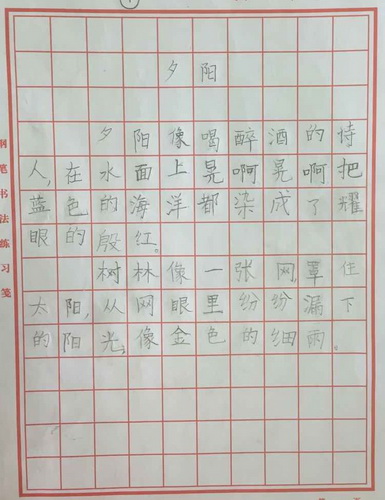 夕阳
夕阳像喝醉酒的诗
人,在水面上晃啊晃啊把
蓝色的海洋都染成了耀
眼的殷红。
树林像一张网,罩住
太阳,从网眼里纷纷漏下
的阳光,像金色的细雨。
钢笔书法练习笺